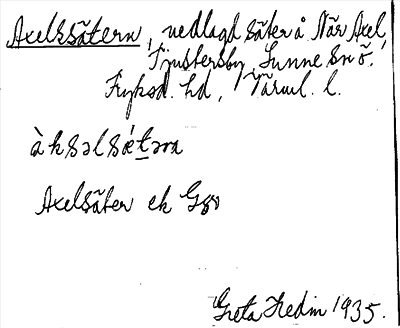 Axelssätern, nedlagd säter å När Axel,
Tjustersby, Sunne sn o.
Fryksd. hd, Värml. l.
àksəlsǽtəɳa
Axelsäter ek
Greta Hedin 1935.